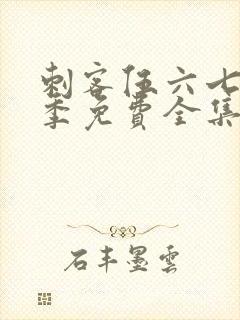 刺客伍六七
季免費全集
石丰墨雲